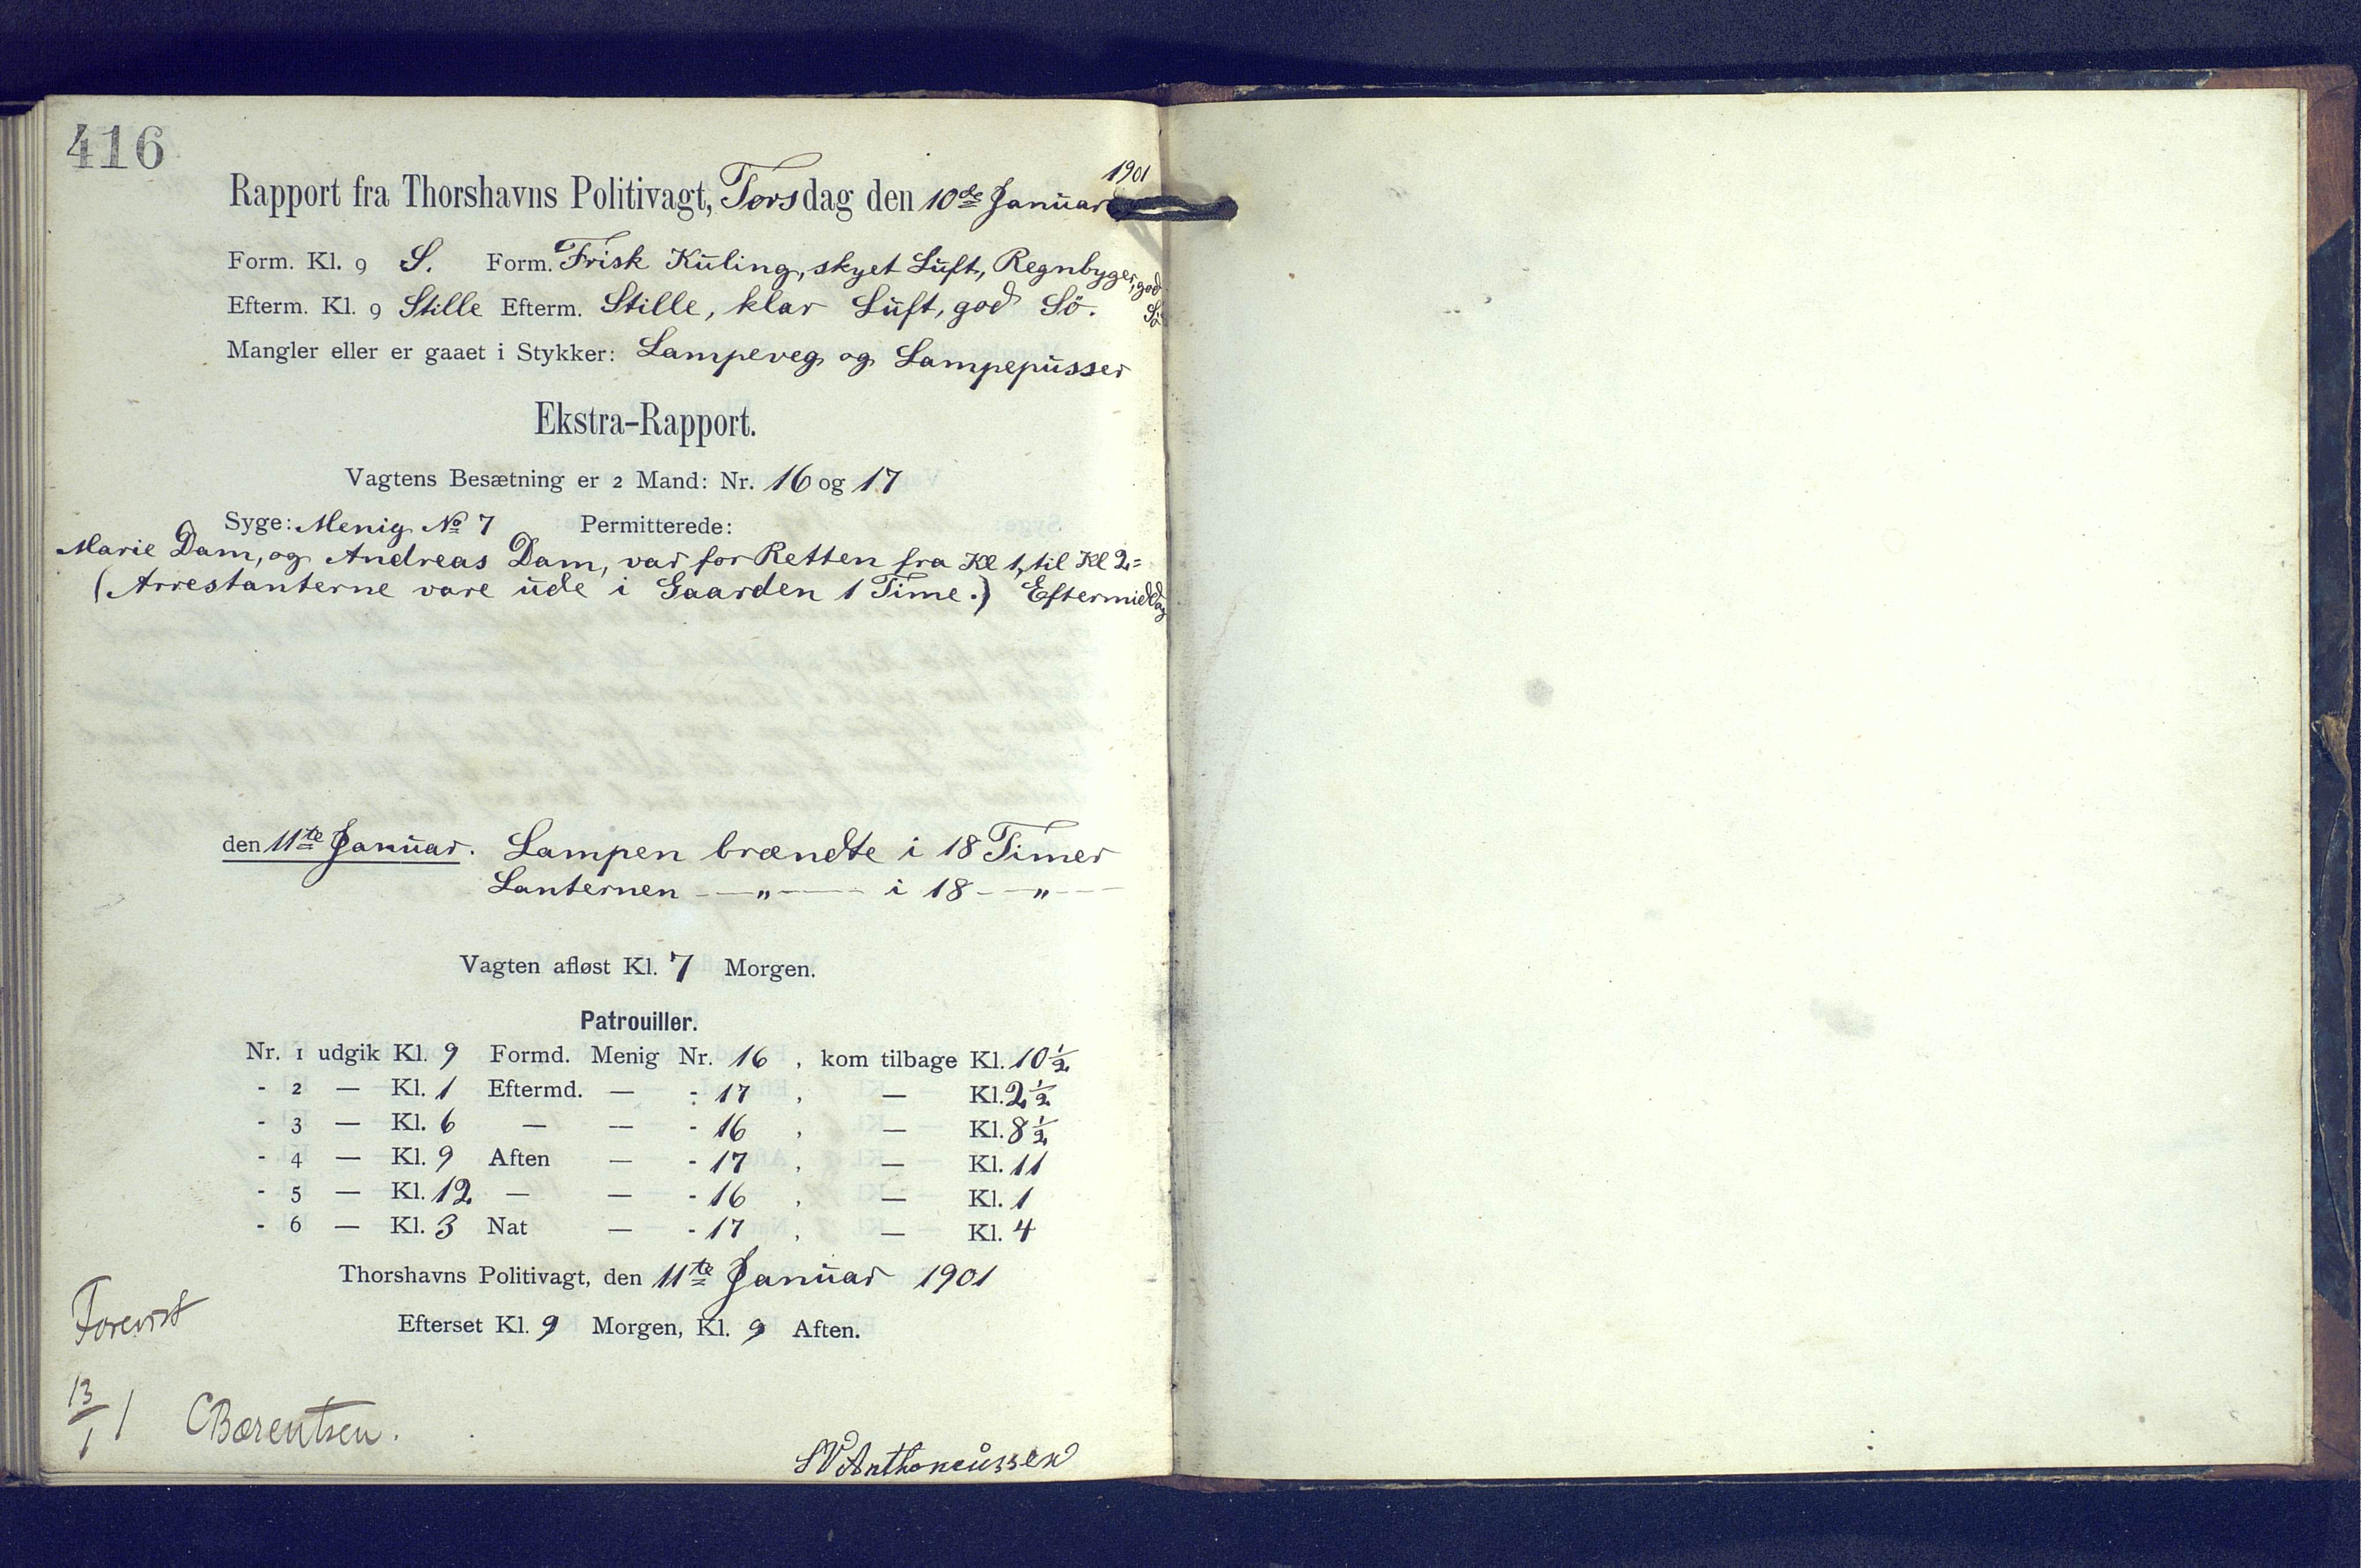 416
Rapport fra Thorshavns Politivagt, Torsdag den 10de Januar 1901
Form. Kl. 9 S. Form. Frisk Kuling, skyet Luft, Regnbyger, god Sö
Efterm. Kl. 9 Stille Efterm. Stille, klar Luft, god Sö.
Mangler eller er gaaet i Stykker: Lampeveg og Lampepusser
Ekstra-Rapport.
Vagtens Besætning er 2 Mand: Nr. 16 og 17
Syge: Menig No 7 Permitterede:
Marie Dam, og Andreas Dam, var for Retten fra Kl 1, til Kl 2=
(Arrestanterne vare ude i Gaarden 1 Time.) Eftermiddag
den 11te Januar. Lampen brændte i 18 Timer
Lanternen —„— i 18 —„—
Vagten afløst Kl. 7 Morgen.
Patrouiller.
Nr. 1 udgik Kl. 9 Formd. Menig Nr. 16, kom tilbage Kl. 10 1/2
- 2 — Kl. 1 Eftermd. — - 17, — Kl. 2 1/2
- 3 — Kl. 6 — — - 16, — Kl. 8 1/2
- 4 — Kl. 9 Aften — - 17, — Kl. 11
- 5 — Kl. 12 — — - 16, — Kl. 1
- 6 — Kl. 3 Nat — - 17, — Kl. 4
Thorshavns Politivagt, den 11te Januar 1901
Efterset Kl. 9 Morgen, Kl. 9 Aften.
Forevist
13/1 1 CBærentsen.
SVAnthoniussen